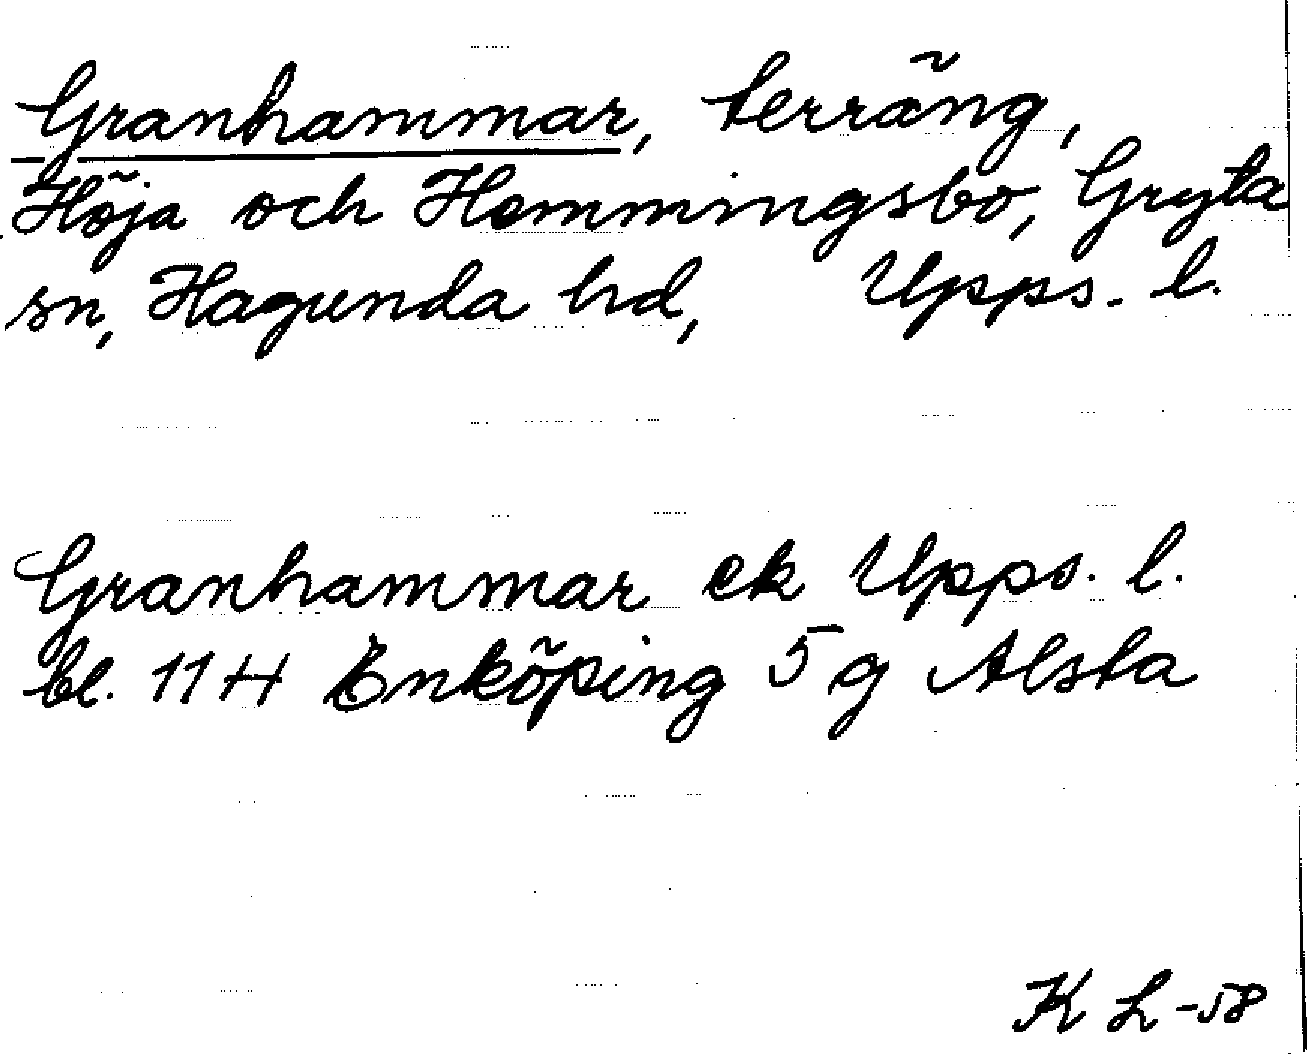 Granhammar, terräng,
Höja och Hemmingsbo, Gryta
sn, Hagunda hd, Upps. l.
Granhammar ek Upps. l.
bl. 11 H Enköping 5 g Alsta
K L -58